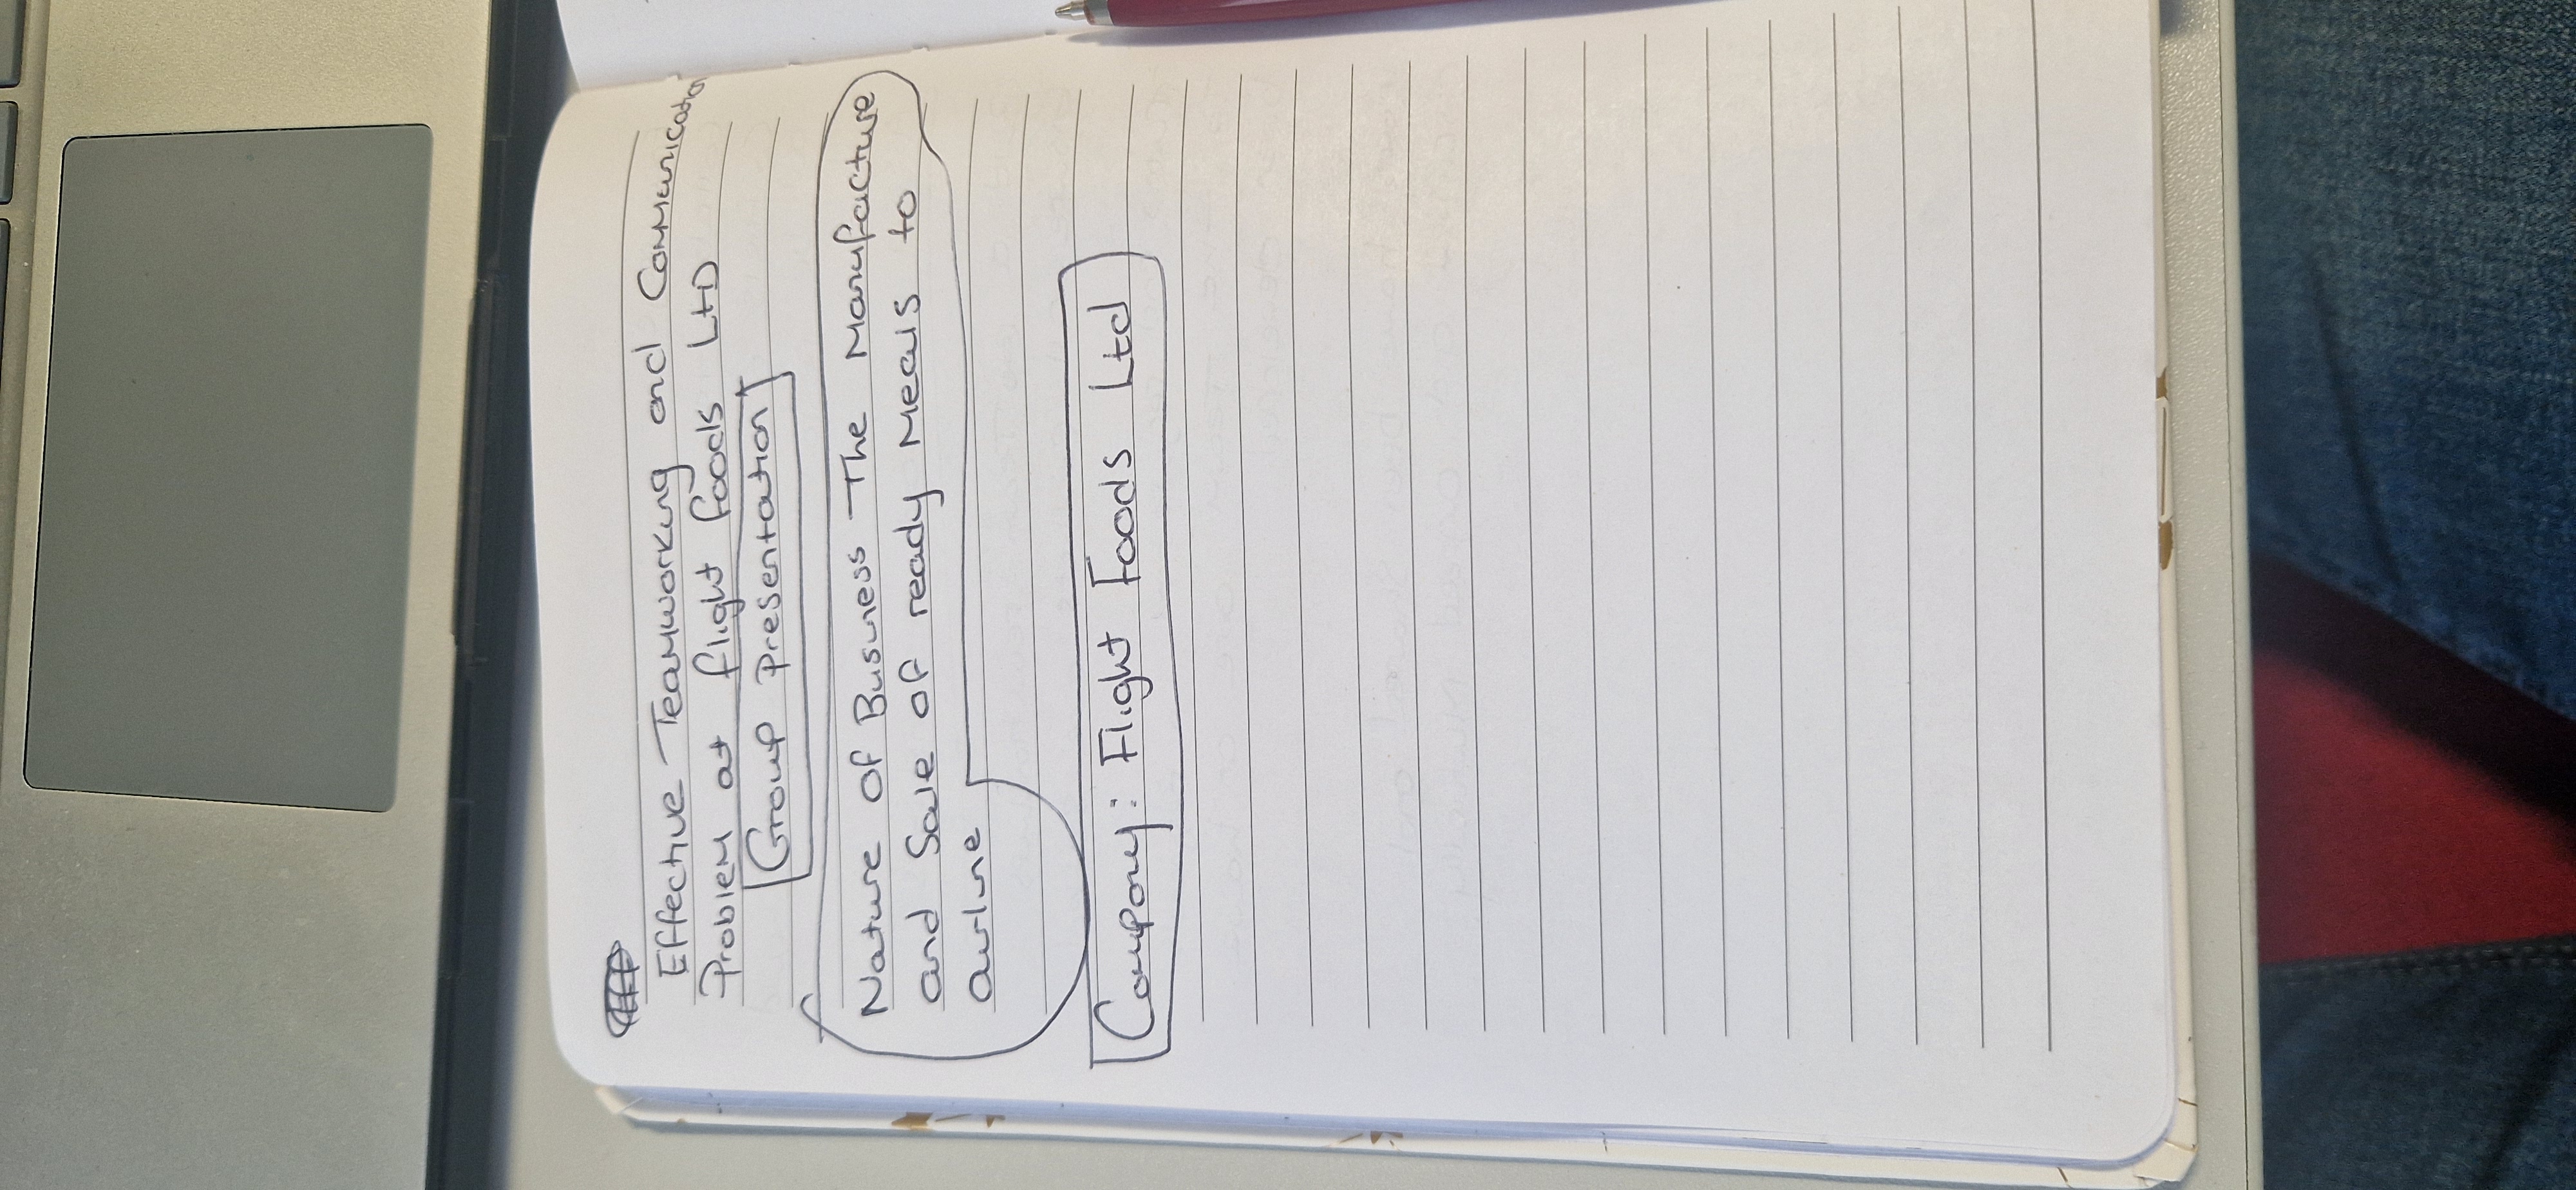 Effective Teamworking and Communication
Problem at flight foods LTD
Group presentation
Nature of Business The Manufacture
and Sale of ready Meals to
airline
Company: Flight Foods Ltd